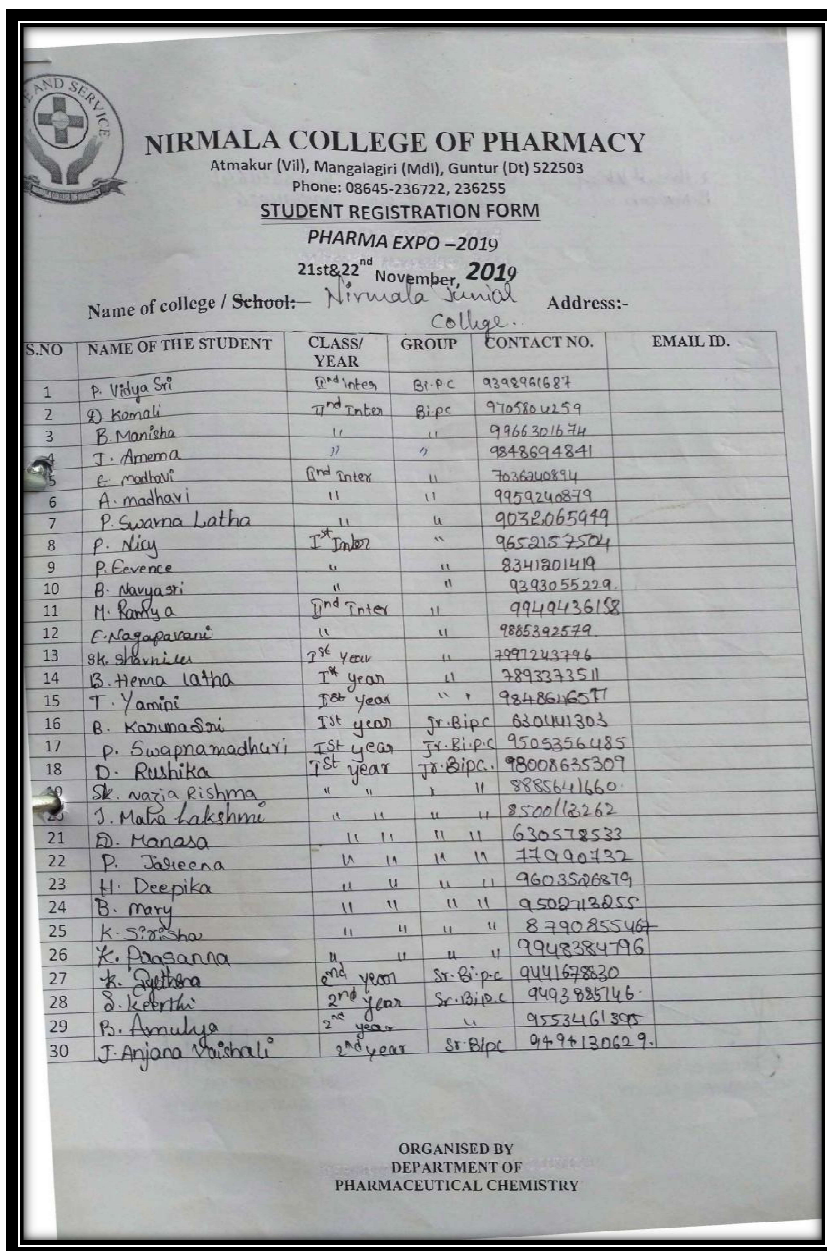 E AND SERVICE
NIRMALA COLLEGE OF PHARMACY
Atmakur (Vil), Mangalagiri (Mdl), Guntur (Dt) 522503
Phone: 08645-236722, 236255
STUDENT REGISTRATION FORM
PHARMA EXPO –2019
21st&22nd November, 2019
Name of college / School:– Nirmala Junial Address:-
College..
S.NO NAME OF THE STUDENT CLASS/ YEAR GROUP CONTACT NO. EMAIL ID.
1 P. Vidya Sri IInd inter Bi.P.C 9398961687
2 D Komali IInd Inter Bi.pc 9705804259
3 B Manisha " " 9966301674
4 J. Amema " " 9848694841
5 E. madhavi IInd Inter " 7036240894
6 A. madhavi " " 9959240879
7 P. Swarna Latha " " 9032065949
8 P. Nicy Ist Inter " 9652157504
9 P. Eevence " " 8341201419
10 B. Navyasri " " 9393055229.
11 M. Ramya IInd Inter " 9949436158
12 E. Nagapavani " " 9885392579
13 SK. Ist Year " 7997243796
14 B. Henna latha Ist year " 7893373511
15 T. Yamini Ist year "
16 B. Karuna Sri Ist year Jr.Bipc
17 P. Swapnamadhuri Ist year Jr.Bi.p.c 9505356485
18 D. Rushika Ist year Jr.Bipc. 98008635309
Sk. Nazia Rishma " " " 8885641660.
J. Maha Lakshmi " " " " 8500113262
21 D. Manasa " " " " 630578533
22 P. Jareena " " " " 77990732
23 H. Deepika " " " " 9603526879
24 B. mary " " " " 9502713255
25 K. Sirisha " " " " 8790855467
26 K. Prasanna " " " " 9948384796
27 K. 2nd year Sr.Bi.p.c 9441678830
28 S. Keerthi 2nd year Sr.Bi.p.c 9493885746.
29 B. Amulya 2nd year "
30 J. Anjana Vaishali 2nd year Sr.Bipc 9494130629.
ORGANISED BY
DEPARTMENT OF
PHARMACEUTICAL CHEMISTRY